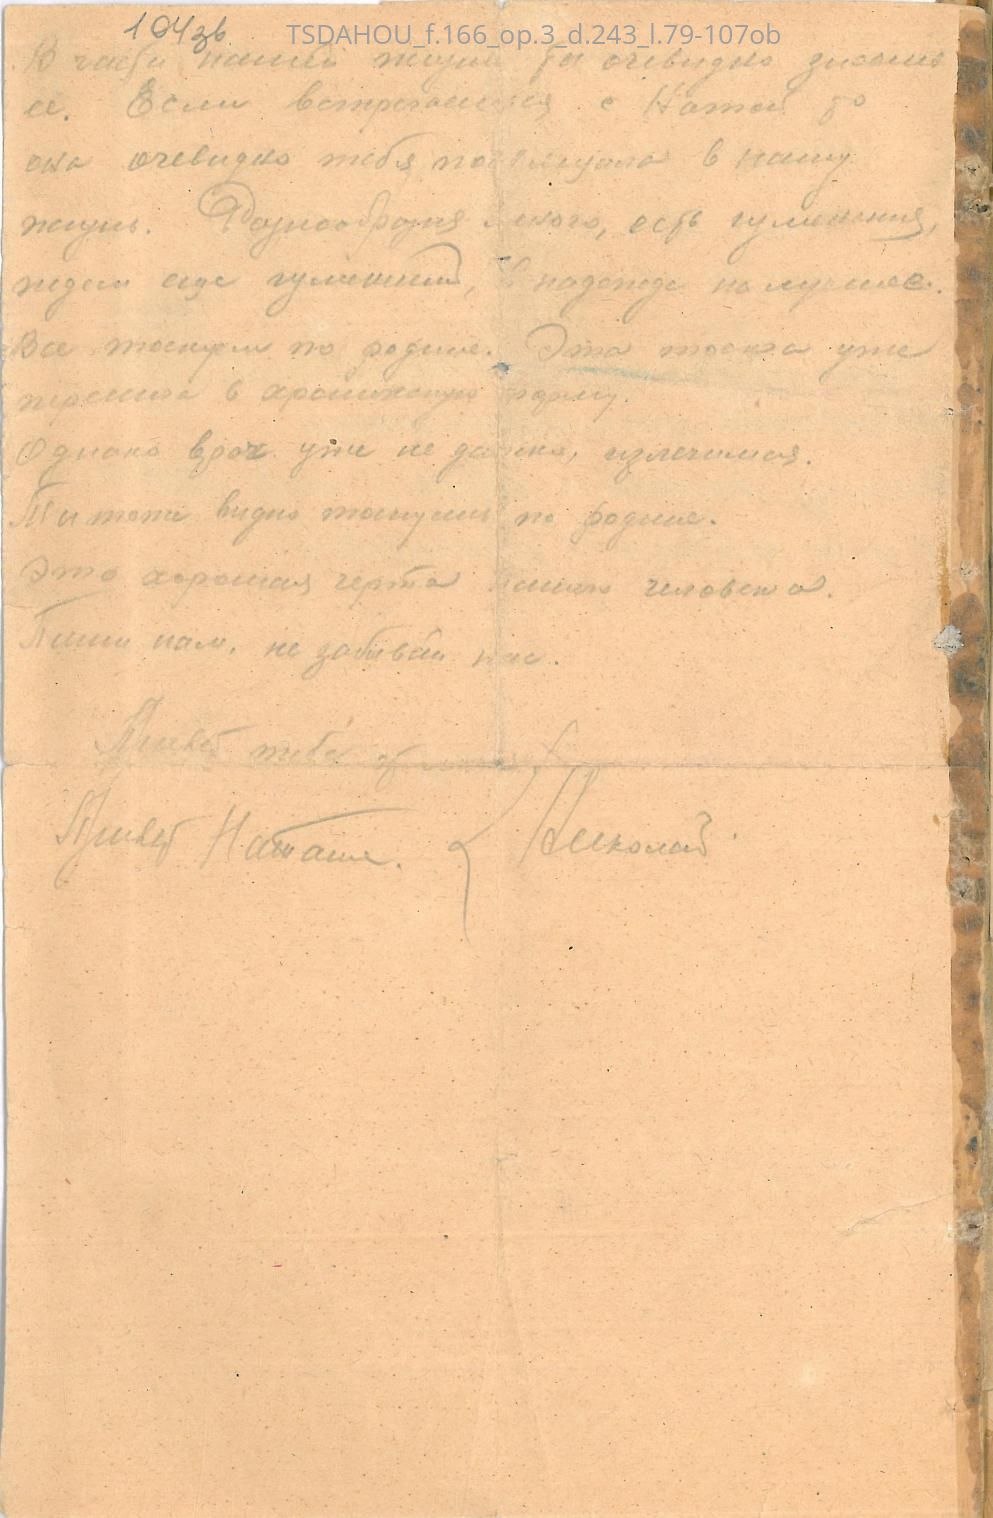 104зв
TSDAHOU_f.166_op.3_d.243_l.79-107ob
В части нашей жизни ты очевидно знаешь
ее. Если встречаешься с Натой то
она очевидно тебя в нашу
жизнь. Разнообразия много, есть
ждем еще в надежде на лучшее.
Все тоскуем по родине. Эта тоска уже
перешла в хроническую форму.
Однако врач уже не далеко, излечимся.
Ты тоже видно тоскуешь по родине.
Это хорошая черта нашего человека.
Пиши нам, не забывай нас.
Привет тебе от
Привет Наташе. Николай.